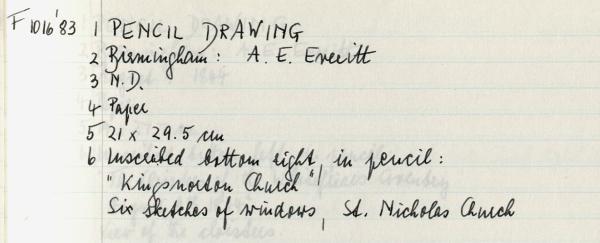 F1016'83 1 PENCIL DRAWING
2 Birmingham: A. E. Everitt
3 N.D.
4 Paper
5 21 x 29.5 cm
6 Inscribed bottom right, in pencil:
"Kingsnorton Church"
Six sketches of windows, St. Nicholas Church